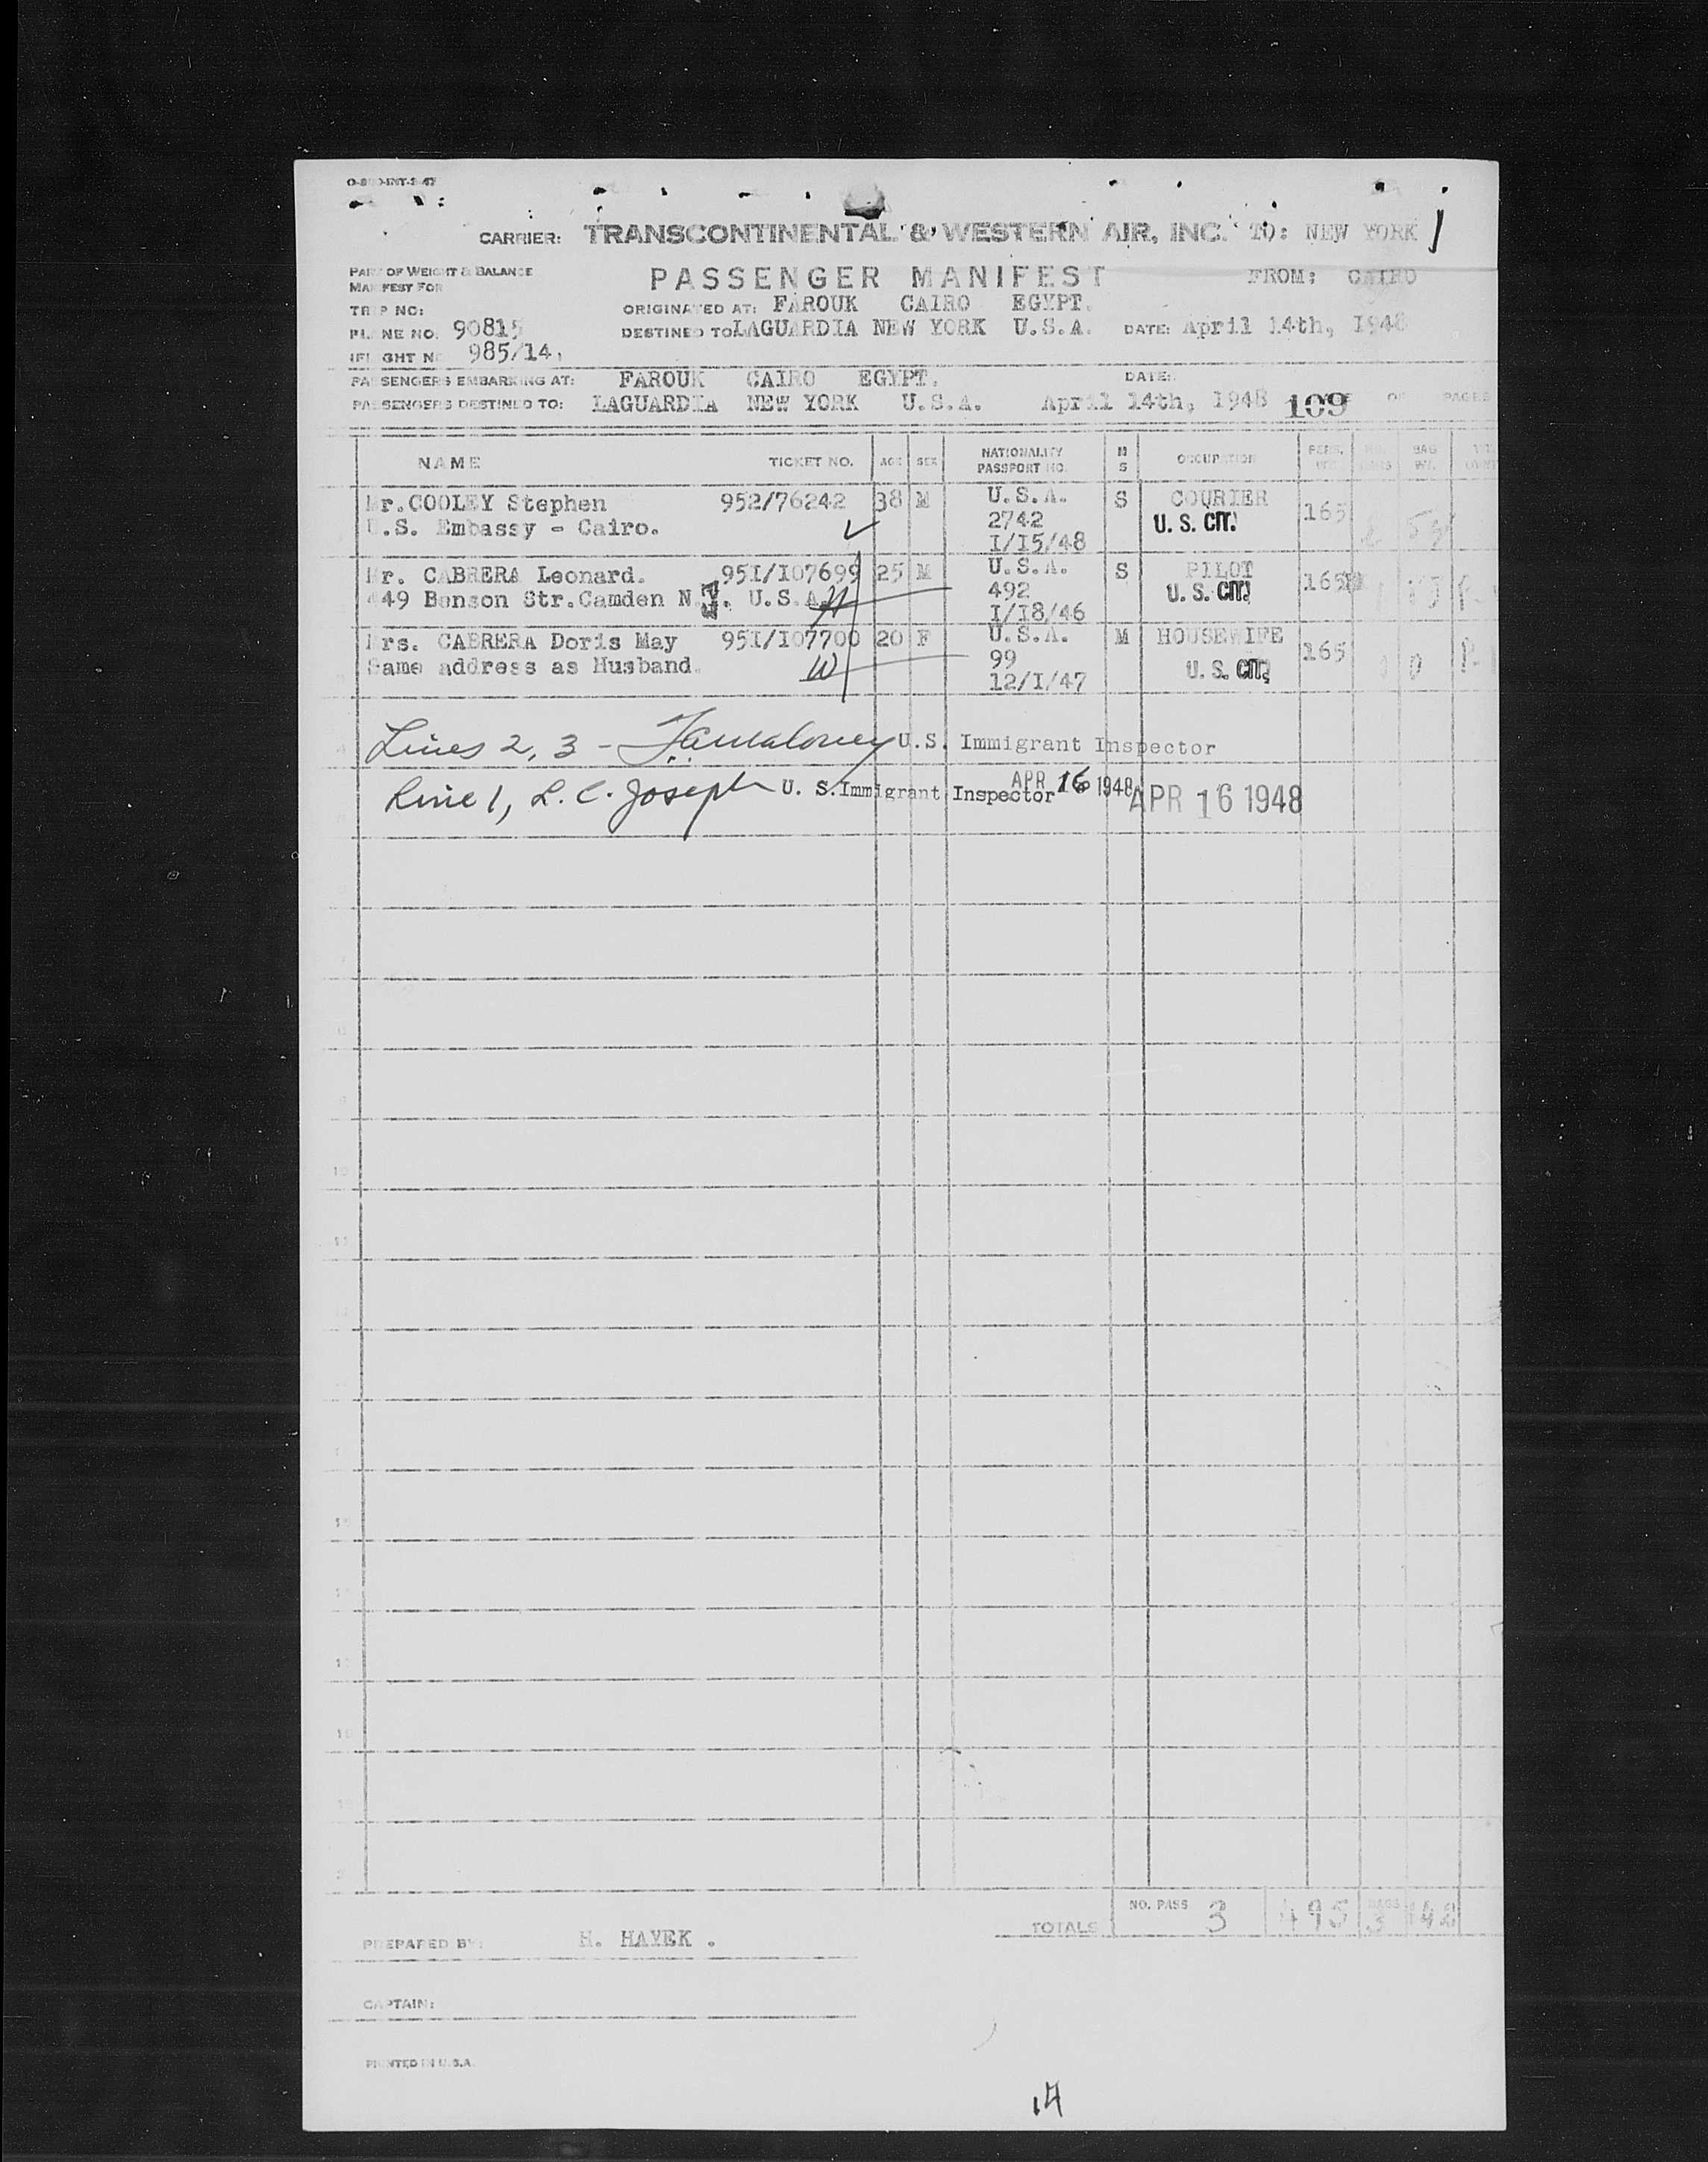 CARRIER: TRANSCONTINENTAL & WESTERN AIR, INC. TO: NEW YORK
PART OF WEIGHT & BALANCE PASSENGER MANIFEST FROM: CAIRO
MANIFEST FOR
TRIP NO: ORIGINATED AT: FAROUK CAIRO EGYPT.
PLANE NO. 90815 DESTINED TO LAGUARDIA NEW YORK U.S.A. DATE: April 14th, 1948
FLIGHT NO 985/14.
PASSENGERS EMBARKING AT: FAROUK CAIRO EGYPT. DATE:
PASSENGERS DESTINED TO: LAGUARDIA NEW YORK U.S.A. April 14th, 1948 109 OF PAGES
NAME TICKET NO. AGE SEX NATIONALITY PASSPORT NO. M S OCCUPATION PERS. WT. BAG WT.
Mr.COOLEY Stephen 952/76242 38 M U.S.A. S COURIER 165
U.S. Embassy - Cairo. 2742 U. S. CIT.
I/I5/48
Mr. CABRERA Leonard. 95I/I07699 25 M U.S.A. S PILOT 165
449 Benson Str.Camden N.J. U.S.A. 492 U. S. CIT.
I/I8/46
Mrs. CABRERA Doris May 95I/I07700 20 F U.S.A. M HOUSEWIFE 165
Same address as Husband. 99 U. S. CIT.
12/I/47
Lines 2, 3 - U.S. Immigrant Inspector
Line 1, L. C. Joseph U. S. Immigrant Inspector APR 16 1948 APR 16 1948
TOTALS NO. PASS 3 495 BAGS 3 148
PREPARED BY: H. HAYEK .
CAPTAIN:
PRINTED IN U.S.A.
14